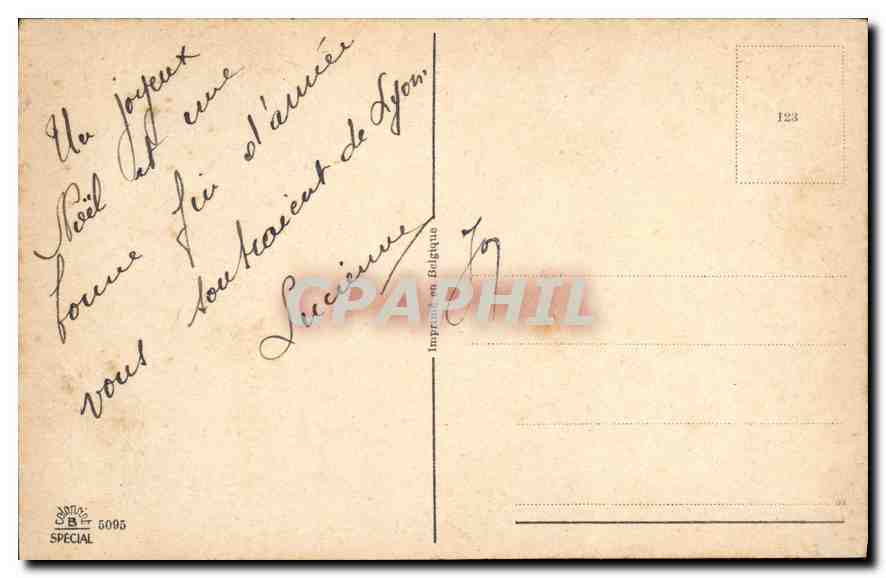 Un joyeux
Noël et une
bonne fin d'année
vous souhaitent de Lyon.
Lucienne
Imprimé en Belgique
123
CPAPHIL
B
5095
SPÉCIAL